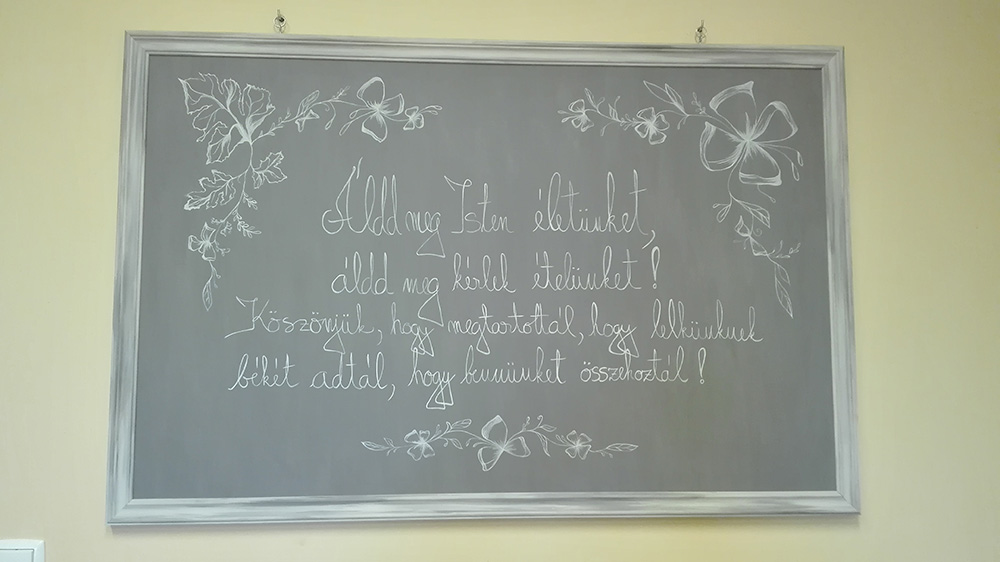 Áldd meg Isten életünket,
áldd meg kérlek ételünket!
Köszönjük, hogy megtartottál, hogy lelkünknek
békét adtál, hogy bennünket összehoztál!